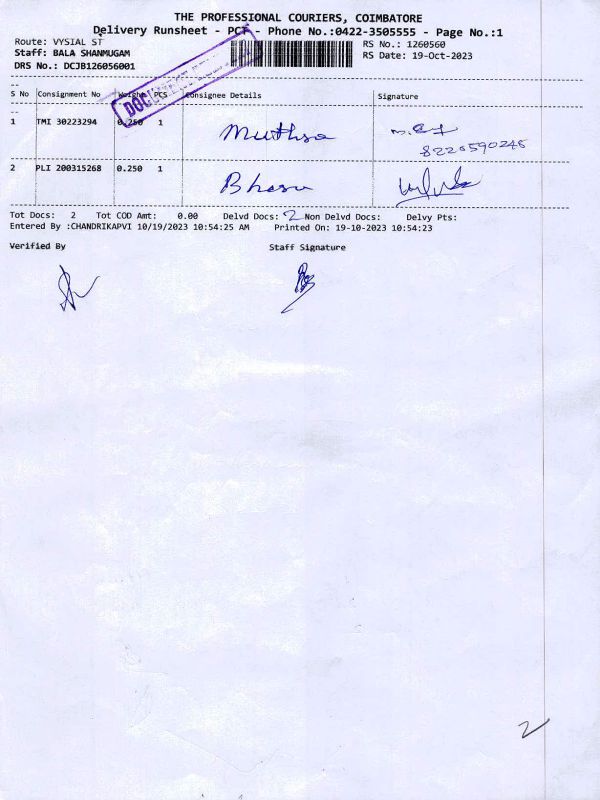 THE PROFESSIONAL COURIERS, COIMBATORE
Delivery Runsheet - PCT - Phone No.:0422-3505555 - Page No.:1
Route: VYSIAL ST RS No.: 1260560
Staff: BALA SHANMUGAM RS Date: 19-Oct-2023
DRS No.: DCJB126056001
S No Consignment No Weight PCS Consignee Details Signature
1 TMI 30223294 0.250 1 Muthsa
8220590245
2 PLI 200315268 0.250 1 Bhasu
Tot Docs: 2 Tot COD Amt: 0.00 Delvd Docs: 2 Non Delvd Docs: Delvy Pts:
Entered By :CHANDRIKAPVI 10/19/2023 10:54:25 AM Printed On: 19-10-2023 10:54:23
Verified By Staff Signature
2